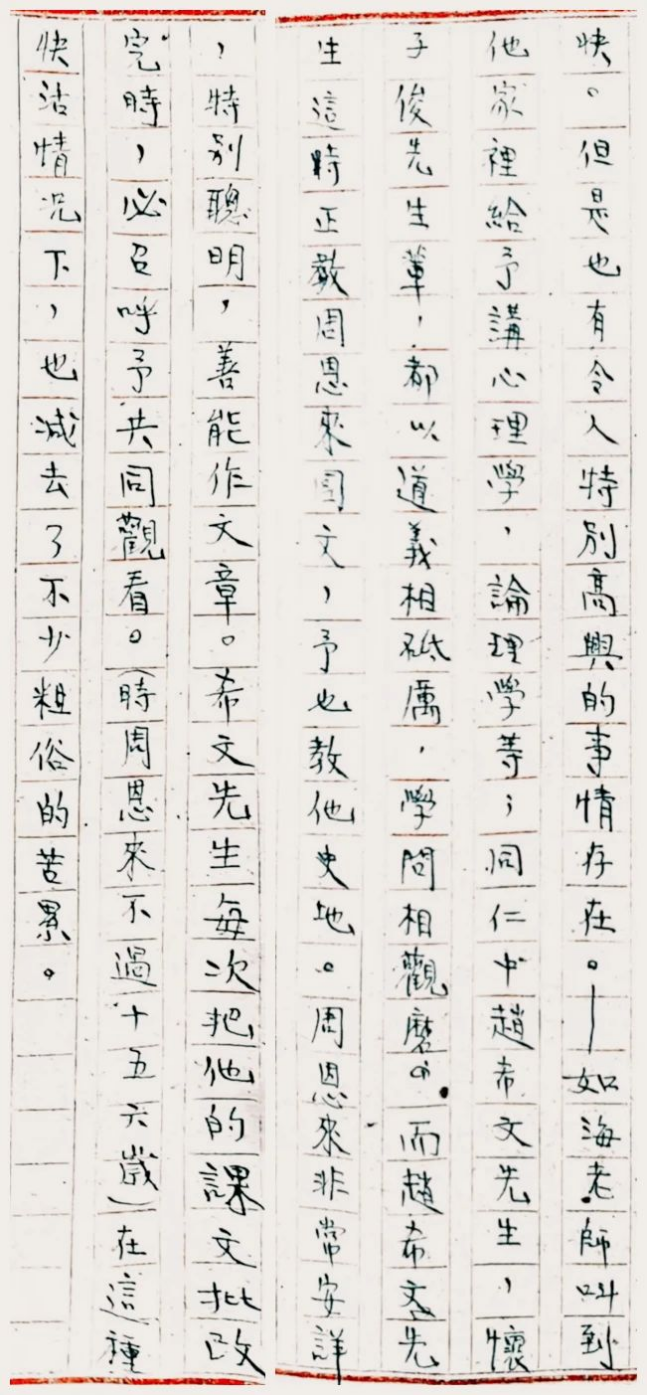 快。但是也有令人特别高興的事情存在。—如海老師叫到
他家裡給予講心理學，論理學等；同仁中趙希文先生，懷
子俊先生輩，都以道義相砥厲，學問相觀磨。而趙希文先
生這時正教周恩來國文，予也教他史地。周恩來非常安詳
，特别聰明，善能作文章。希文先生每次把他的課文批改
完時，必召呼予共同觀看。（時周恩來不過十五六歲）在這種
快活情况下，也減去了不少粗俗的苦累。